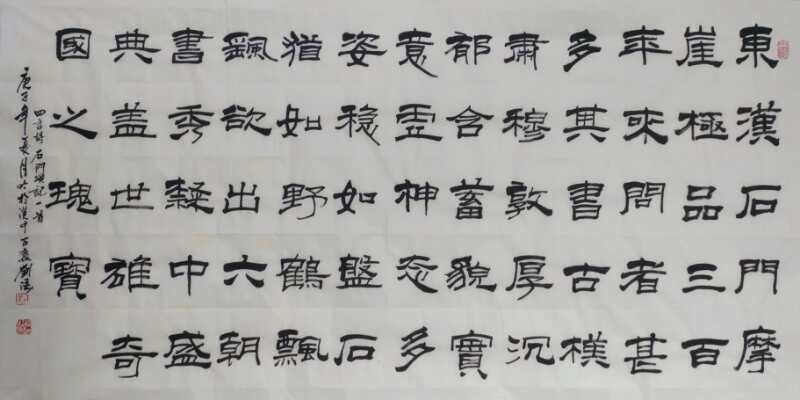 東漢石門摩
崖極品三百
年來問者甚
多其書古樸
肅穆敦厚沉
郁含蓄貌實
意靈神态多
姿稳如盤石
猶如野鶴飄
飄欲出六朝
書秀隸中盛
典盖世雄奇
國之瑰寶
四言詩石門頌記一首
庚子年夏月於漢中百忍劉